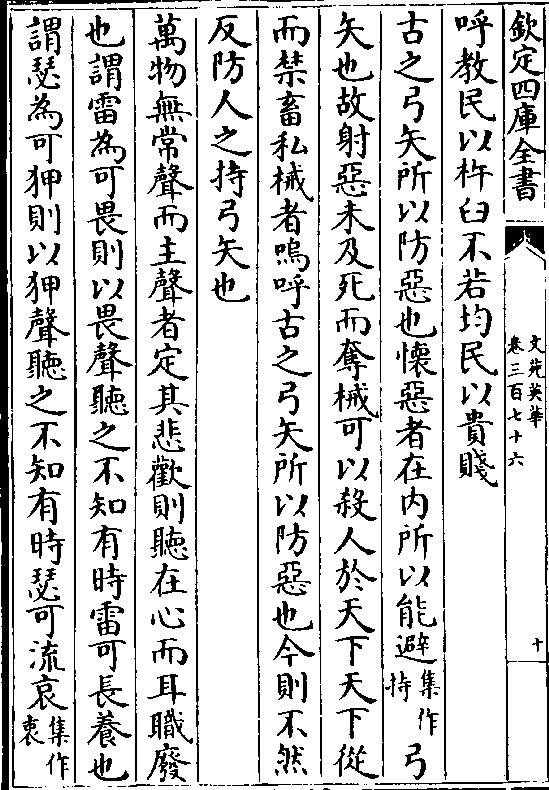 欽定四庫全書
文苑英華
卷三百七十六
十
呼教民以杵臼不若均民以貴賤
古之弓矢所以防惡也懐惡者在内所以能避集作持弓
矢也故射惡未及死而奪械可以殺人於天下天下從
而禁畜私械者嗚呼古之弓矢所以防惡也今則不然
反防人之持弓矢也
萬物無常聲而主聲者定其悲歡則聽在心而耳職廢
也謂雷為可畏則以畏聲聽之不知有時雷可長養也
謂瑟為可狎則以狎聲聽之不知有時瑟可流哀集作衷